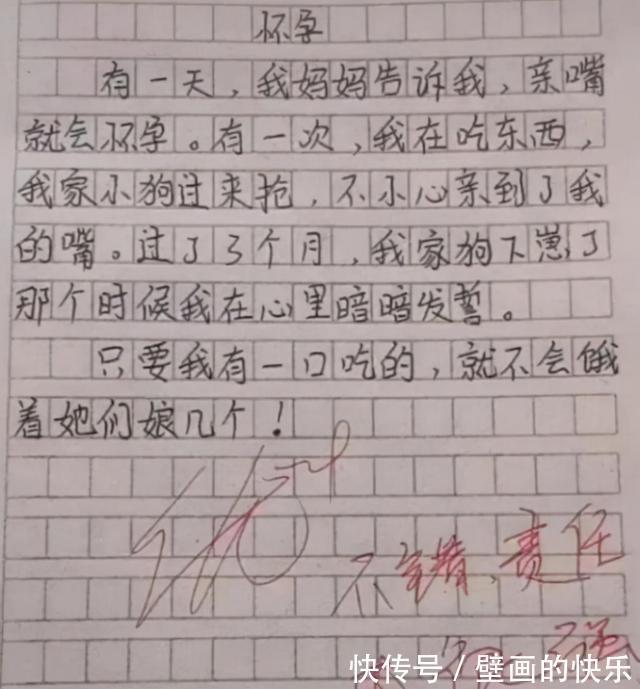 怀孕
有一天，我妈妈告诉我，亲嘴
就会怀孕。有一次，我在吃东西，
我家小狗过来抢，不小心亲到了我
的嘴。过了3个月，我家狗下崽了
那个时候我在心里暗暗发誓。
只要我有一口吃的，就不会饿
着她们娘几个！
不错，责任
强
快传号/壁画的快乐